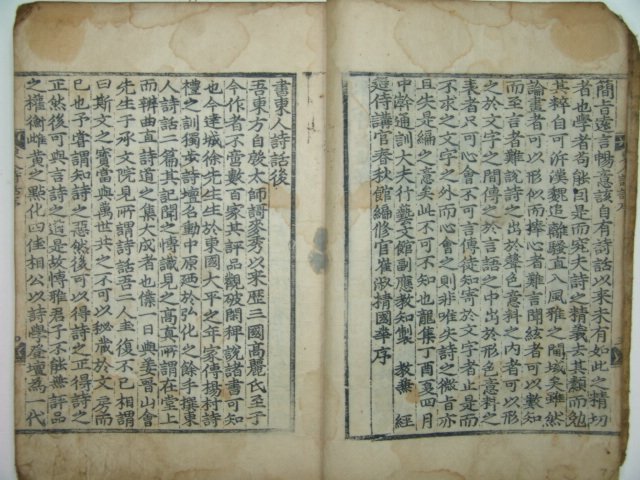 簡旨遠言暢意該自有詩話以來未有如此之精切
者也學者苟能因是而究夫詩之精義去其纇而勉
其粹自可泝漢魏追離騷直入風雅之閫域矣雖然
論畫者可以形似而捧心者難言聞絃者可以數知
而至言者難說詩之出於聲色意料之內者可以形
之於文字之間傳之於言語之中出於形色意料之
表者只可心會不可言傳徒知寄於文字者止是而
不求之文字之外而心會之則非唯失詩之微旨亦
且失是編之意矣此不可不知也龍集丁酉夏四月
中澣通訓大夫行藝文館副應教知製 教兼 經
筵侍講官春秋館編修官崔淑精國華序
書東人詩話後
吾東方自殷太師謌麥秀以來歷三國高麗氏至于
今作者不啻數百家其評品觀破閑稗說諸書可知
也今達城徐先生生於東國大平之年家傳楊村詩
禮之訓獨步詩壇名動中原廼於弘化之餘手撰東
人詩話一篇其記聞之博識見之高眞所謂在堂上
而辨曲直詩道之集大成者也一日與姜晉山會
先生于承文院見所謂詩話吾二人圭復不已相謂
曰斯文之寶當與萬世共之不可以秘藏於文房而
已也予嘗謂知詩之惡然後可以得詩之正得詩之
正然後可與言詩之道是故博雅君子不能無評品
之權衡雌黃之點化四佳相公以詩學登壇爲一代